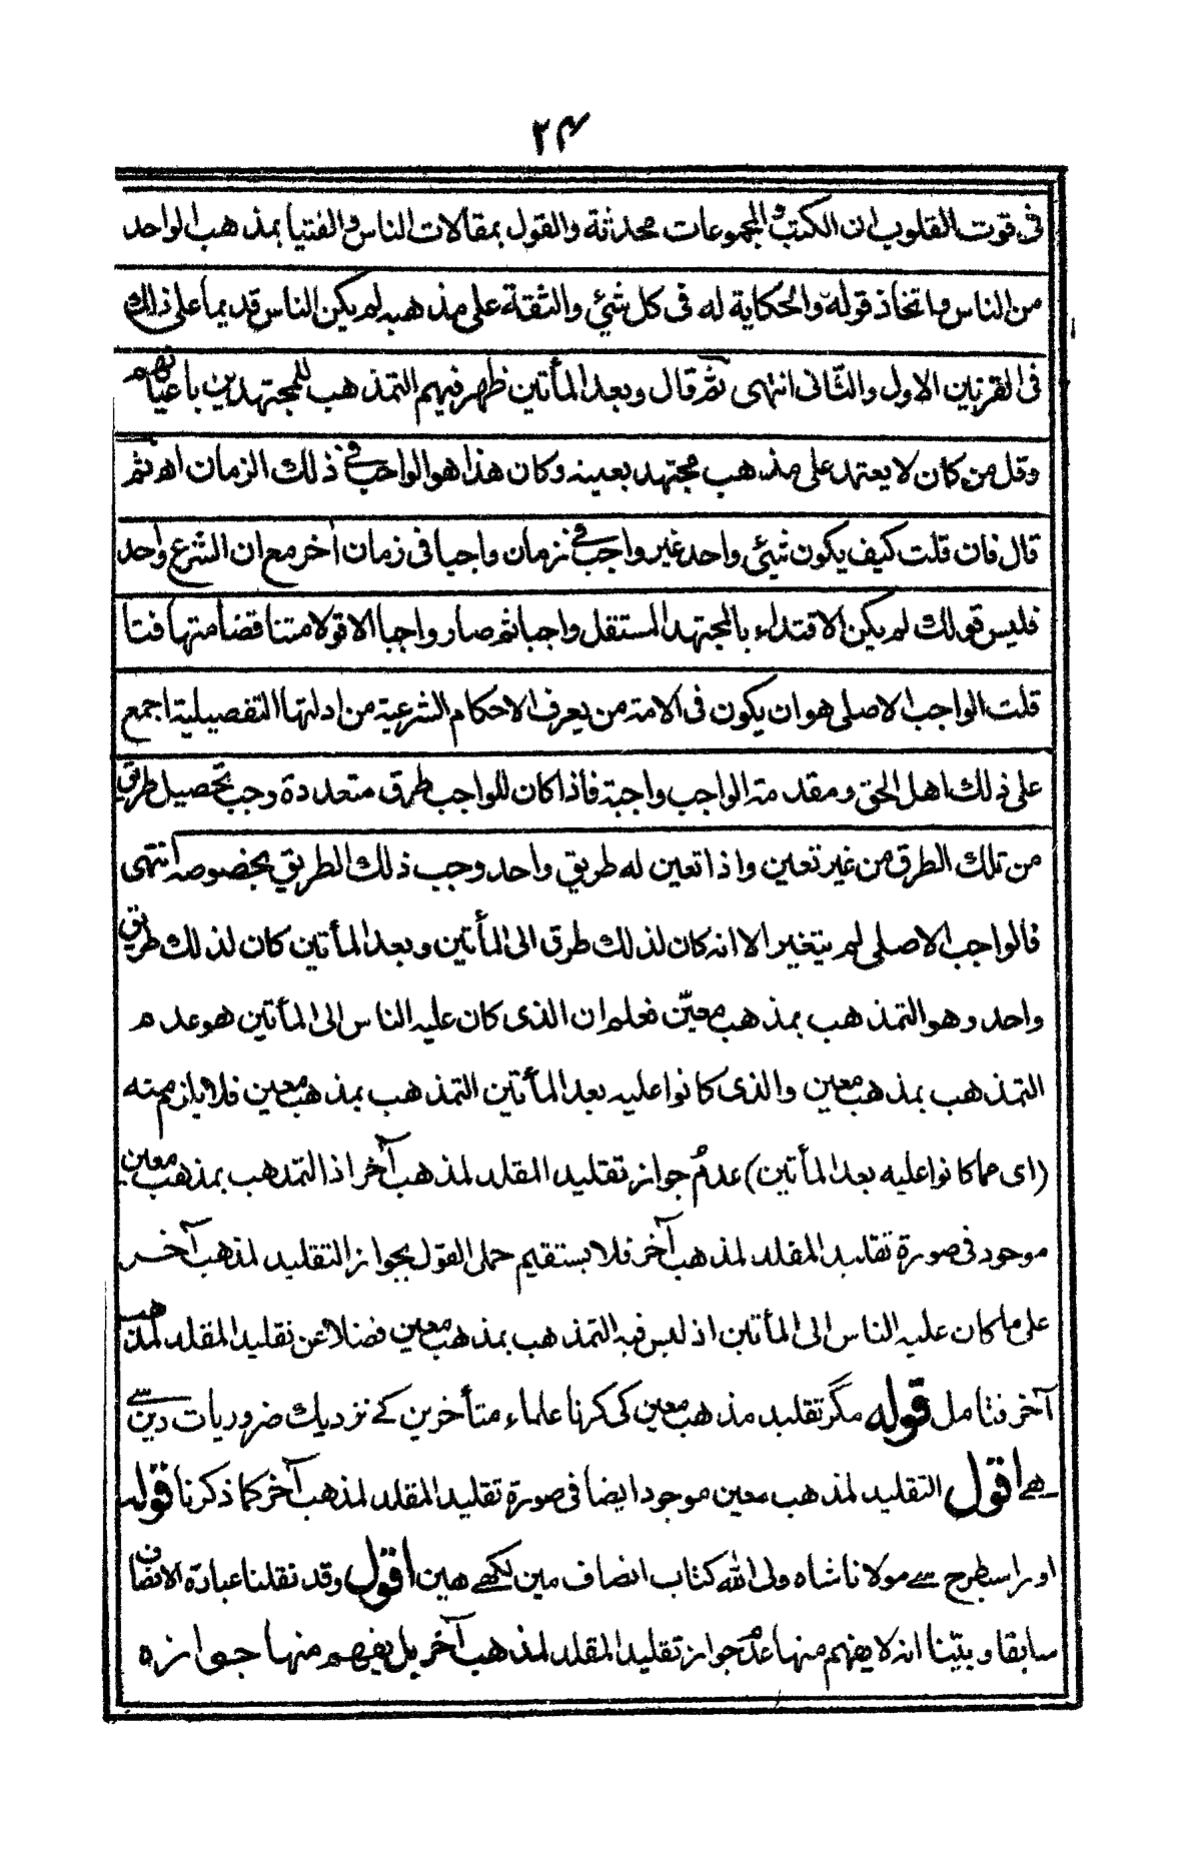 ٢٤
فى قوت القلوب ان الكتب والمجموعات محدثة والقول بمقالات الناس والفتيا بمذهب الواحد
من الناس واتخاذ قوله والحكاية له فى كل شيئ والثقة على مذهبه لم يكن الناس قديما على ذلك
فى القرنين الاول والثانى انتهى ثم قال وبعد المأتين ظهر فيهم التمذهب للمجتهدين باعيانهم
وقل من كان لا يعتمد على مذهب مجتهد بعينه وكان هذا هو الواجب فى ذلك الزمان اهـ ثم
قال فان قلت كيف يكون شيئ واحد غير واجب فى زمان واجبا فى زمان آخر مع ان الشرع واحد
فليس قولك لم يكن الاقتداء بالمجتهد المستقل واجبا ثم صار واجبا الا قولا متناقضا متهافتا
قلت الواجب الاصلى هو ان يكون فى الامة من يعرف الاحكام الشرعية من ادلتها التفصيلية اجمع
على ذلك اهل الحق ومقدمة الواجب واجبة فاذا كان للواجب طرق متعددة وجب تحصيل طريق
من تلك الطرق من غير تعين واذا تعين له طريق واحد وجب ذلك الطريق بخصوصه انتهى
فالواجب الاصلى لم يتغير الا انه كان لذلك طرق الى المأتين وبعد المأتين كان لذلك طريق
واحد وهو التمذهب بمذهب معيّن فعلم ان الذى كان عليه الناس الى المأتين هو عدم
التمذهب بمذهب معين والذى كانوا عليه بعد المأتين التمذهب بمذهب معين فلا يلزم منه
(اى مما كانوا عليه بعد المأتين) عدم جواز تقليد المقلد لمذهب آخر اذ التمذهب بمذهب معين
موجود فى صورة تقليد المقلد لمذهب آخر فلا يستقيم حمل القول بجواز التقليد لمذهب آخر
على ما كان عليه الناس الى المأتين اذ ليس فيه التمذهب بمذهب معين فضلا عن تقليد المقلد لمذهب
آخر فتامل قوله مگر تقليد مذهب معين كى كرنا علماء متأخرين كے نزديك ضروريات دين سے
ہے اقول التقليد لمذهب معين موجود ايضا فى صورة تقليد المقلد لمذهب آخر كما ذكرنا قوله
اور اسطرح سے مولانا شاه ولى الله كتاب انصاف مين لكهے هين اقول وقد نقلنا عبارة الانصاف
سابقا وبيّنا انه لا يفهم منها عدم جواز تقليد المقلد لمذهب آخر بل يفهم منها جوازه